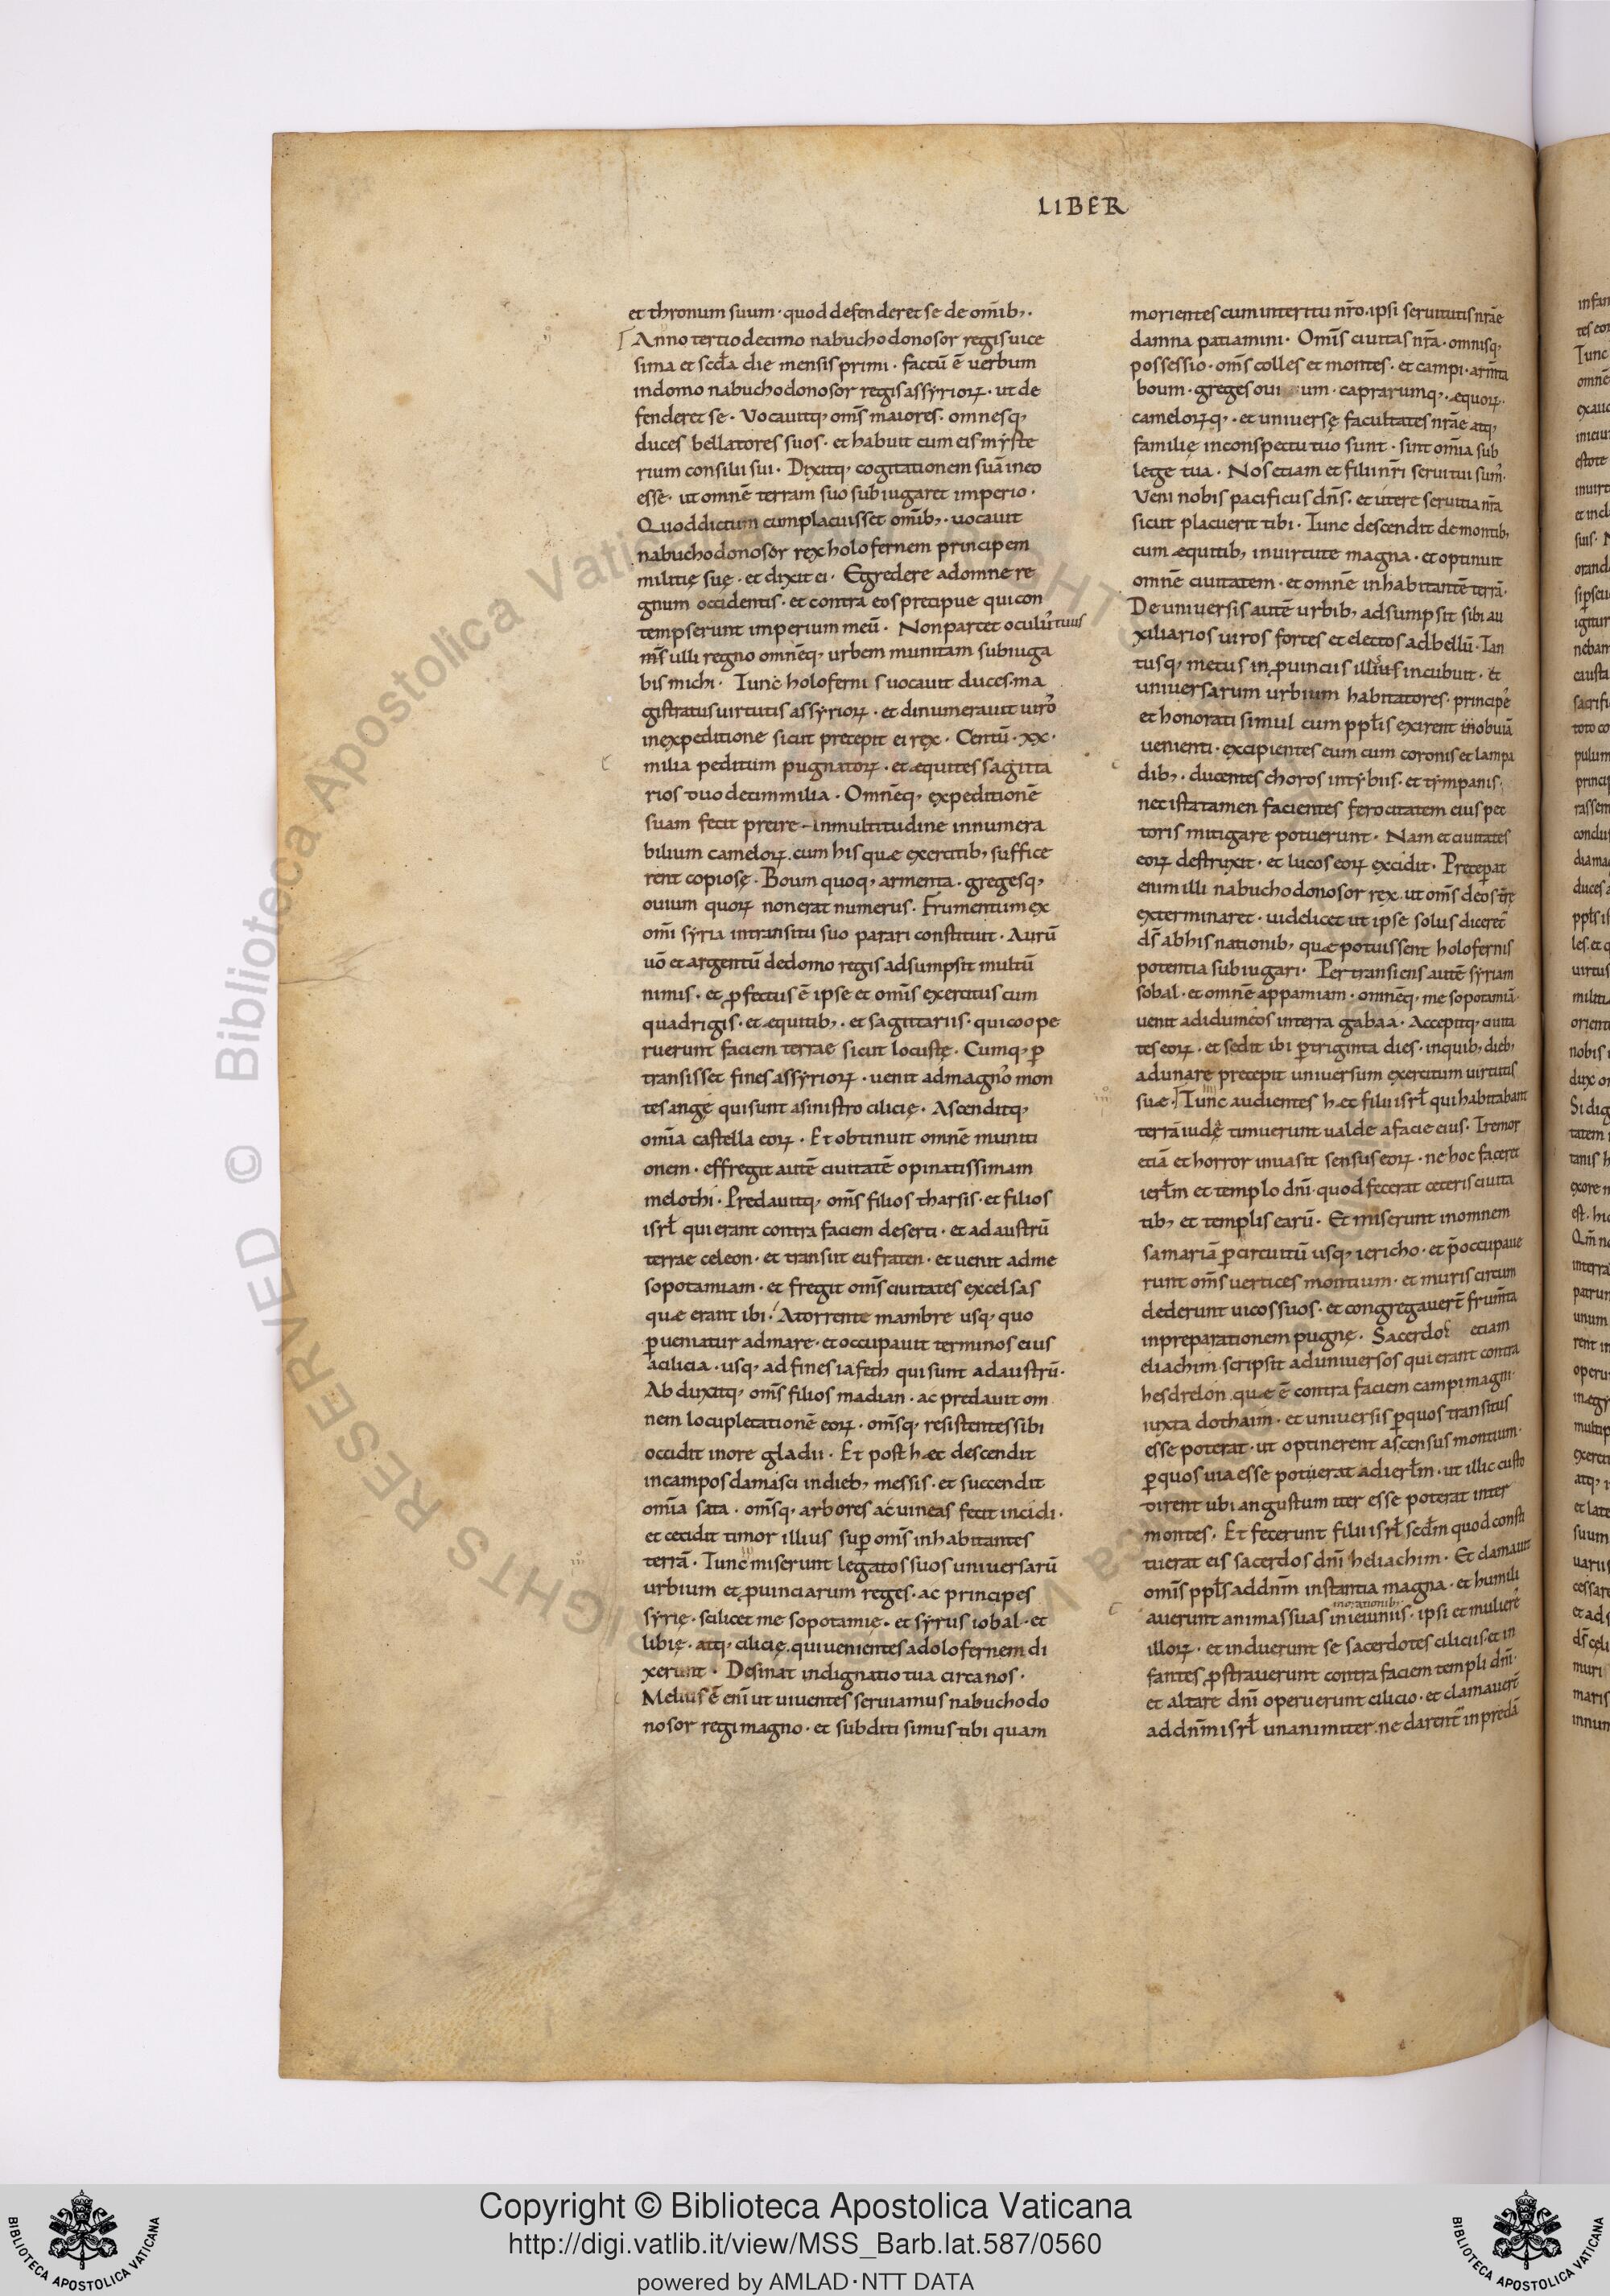 LIBER
et thronum suum · quod defenderet se de om̄ib; ·
Anno tertiodecimo nabuchodonosor regis uice
sima et scđa die mensis primi · factū ē uerbum
indomo nabuchodonosor regis assyrioꝝ · ut de
fenderet se · Vocauitq; om̄s maiores · omnesq;
duces bellatores suos · et habuit cum eis myste
rium consilii sui · Dixitq; cogitationem suā ineo
esse · ut omnē terram suo subiugaret imperio ·
Quod dictum cum placuisset om̄ib; · uocauit
nabuchodonosor rex holofernem principem
militię suę · et dixit ei · Egredere adomne re
gnum occidentis · et contra eos precipue qui con
tempserunt imperium meū · Non parcet oculus tuus
m̄s ulli regno omnēq; urbem munitam subiuga
bis michi · Tunc holofernis uocauit duces · ma
gistratus uirtutis assyrioꝝ · et dinumerauit uiros
inexpeditione sicut precepit ei rex · Centū · xx ·
milia peditum pugnatoꝝ · et æquites sagitta
rios duodecim milia · Omnēq; expeditionē
suam fecit preire inmultitudine innumera
bilium cameloꝝ · cum his quæ exercitib; suffice
rent copiosę · Boum quoq; armenta · gregesq;
ouium quoꝝ non erat numerus · Frumentum ex
om̄i syria intransitu suo parari constituit · Aurū
uō et argentū dedomo regis adsumpsit multū
nimis · et ꝓfectus ē ipse et om̄is exercitus cum
quadrigis · et æquitib; · et sagittariis · qui coope
ruerunt faciem terrae sicut locustę · Cumq; ꝑ
transisset fines assyrioꝝ · uenit admagnos mon
tes ange qui sunt asinistro cilicię · Ascenditq;
om̄ia castella eoꝝ · Et obtinuit omnē muniti
onem · effregit autē ciuitatē opinatissimam
melothi · Predauitq; om̄s filios tharsis · et filios
isrł qui erant contra faciem deserti · et ad austrū
terrae celeon · et transiit eufraten · et uenit adme
sopotamiam · et fregit om̄s ciuitates excelsas
quæ erant ibi · Atorrente mambre usq; quo
ꝑueniatur admare · et occupauit terminos eius
acilicia · usq; ad fines iafeth qui sunt ad austrū ·
Abduxitq; om̄s filios madian · ac predauit om
nem locupletationē eoꝝ · om̄sq; resistentes sibi
occidit inore gladii · Et post hæc descendit
incampos damasci indieb; messis · et succendit
om̄ia sata · om̄sq; arbores ac uineas fecit incidi ·
et cecidit timor illius suꝑ om̄s inhabitantes
terrā · Tunc miserunt legatos suos uniuersarū
urbium et ꝓuinciarum reges · ac principes
syrię · scilicet mesopotamię · et syrus iobal · et
libię · atq; cilicię · qui uenientes adolofernem di
xerunt · Desinat indignatio tua circa nos ·
Melius ē eni ut uiuentes seruiamus nabuchodo
nosor regi magno · et subditi simus tibi quam
morientes cum interitu nr̄o · ipsi seruitutis nr̄ae
damna patiamini · Om̄is ciuitas nr̄a · omnisq;
possessio · om̄s colles et montes · et campi · arm̄ta
boum · greges oui um · caprarumq; · æquoꝝ ·
cameloꝝq; · et uniuersę facultates nr̄ae atq;
familię inconspectu tuo sunt · sint om̄ia sub
lege tua · Nos etiam et filii nr̄i serui tui sum;
Veni nobis pacificus dn̄s · et utere seruitia nr̄a
sicut placuerit tibi · Tunc descendit demontib;
cum æquitib; inuirtute magna · et optinuit
omnē ciuitatem · et omnē inhabitantē terrā ·
De uniuersis autē urbib; adsumpsit sibi au
xiliarios uiros fortes et electos adbellū · Tan
tusq; metus in ꝓuinciis illius incubuit · et
uniuersarum urbium habitatores · principes
et honorati simul cum ppłis exirent inobuiā
uenienti · excipientes eum cum coronis et lampa
dib; · ducentes choros intybiis · et tympanis ·
nec ista tamen facientes ferocitatem eius pec
toris mitigare potuerunt · Nam et ciuitates
eoꝝ destruxit · et lucos eoꝝ excidit · Preceperat
enim illi nabuchodonosor rex ut om̄s deos terre
exterminaret · uidelicet ut ipse solus diceret̄
ds̄ abhis nationib; quæ potuissent holofernis
potentia subiugari · Pertransiens autē syriam
sobal · et omnē appamiam · omnēq; mesopotamiā ·
uenit adidumeos interra gabaa · Accepitq; ciuita
tes eoꝝ · et sedit ibi ꝑ triginta dies · inquib; dieb;
adunare precepit uniuersum exercitum uirtutis
suæ · Tunc audientes hæc filii isrł qui habitabant
terrā iudę timuerunt ualde afacie eius · Tremor
etiā et horror inuasit sensus eoꝝ · ne hoc faceret
ierłm et templo dn̄i · quod fecerat ceteris ciuita
tib; et templis earū · Et miserunt inomnem
samariā ꝑ circuitū usq; iericho · et p̄occupaue
runt om̄s uertices montium · et muris circum
dederunt uicos suos · et congregauer̄t frum̄ta
inpreparationem pugnę · Sacerdos etiam
eliachim scripsit aduniuersos qui erant contra
hesdrelon quæ ē contra faciem campi magni ·
iuxta dothaim · et uniuersis ꝑ quos transitus
esse poterat · ut optinerent ascensus montium ·
ꝑ quos uia esse potuerat adierłm · ut illic custo
dirent ubi angustum iter esse poterat inter
montes · Et fecerunt filii isrł scđm quod consti
tuerat eis sacerdos dn̄i heliachim · Et clamauit
om̄is ppłs addnm̄ instantia magna · et humili
inorationib;
auerunt animas suas inieiuniis · ipsi et mulieres
illoꝝ · et induerunt se sacerdotes ciliciis · et in
fantes ꝓstrauerunt contra faciem templi dn̄i ·
et altare dn̄i operuerunt cilicio · et clamauer̄t
addnm̄ isrł unanimiter · ne darent̄ inpredā
Copyright © Biblioteca Apostolica Vaticana
http://digi.vatlib.it/view/MSS_Barb.lat.587/0560
powered by AMLAD·NTT DATA
BIBLIOTECA APOSTOLICA VATICANA
BIBLIOTECA APOSTOLICA VATICANA